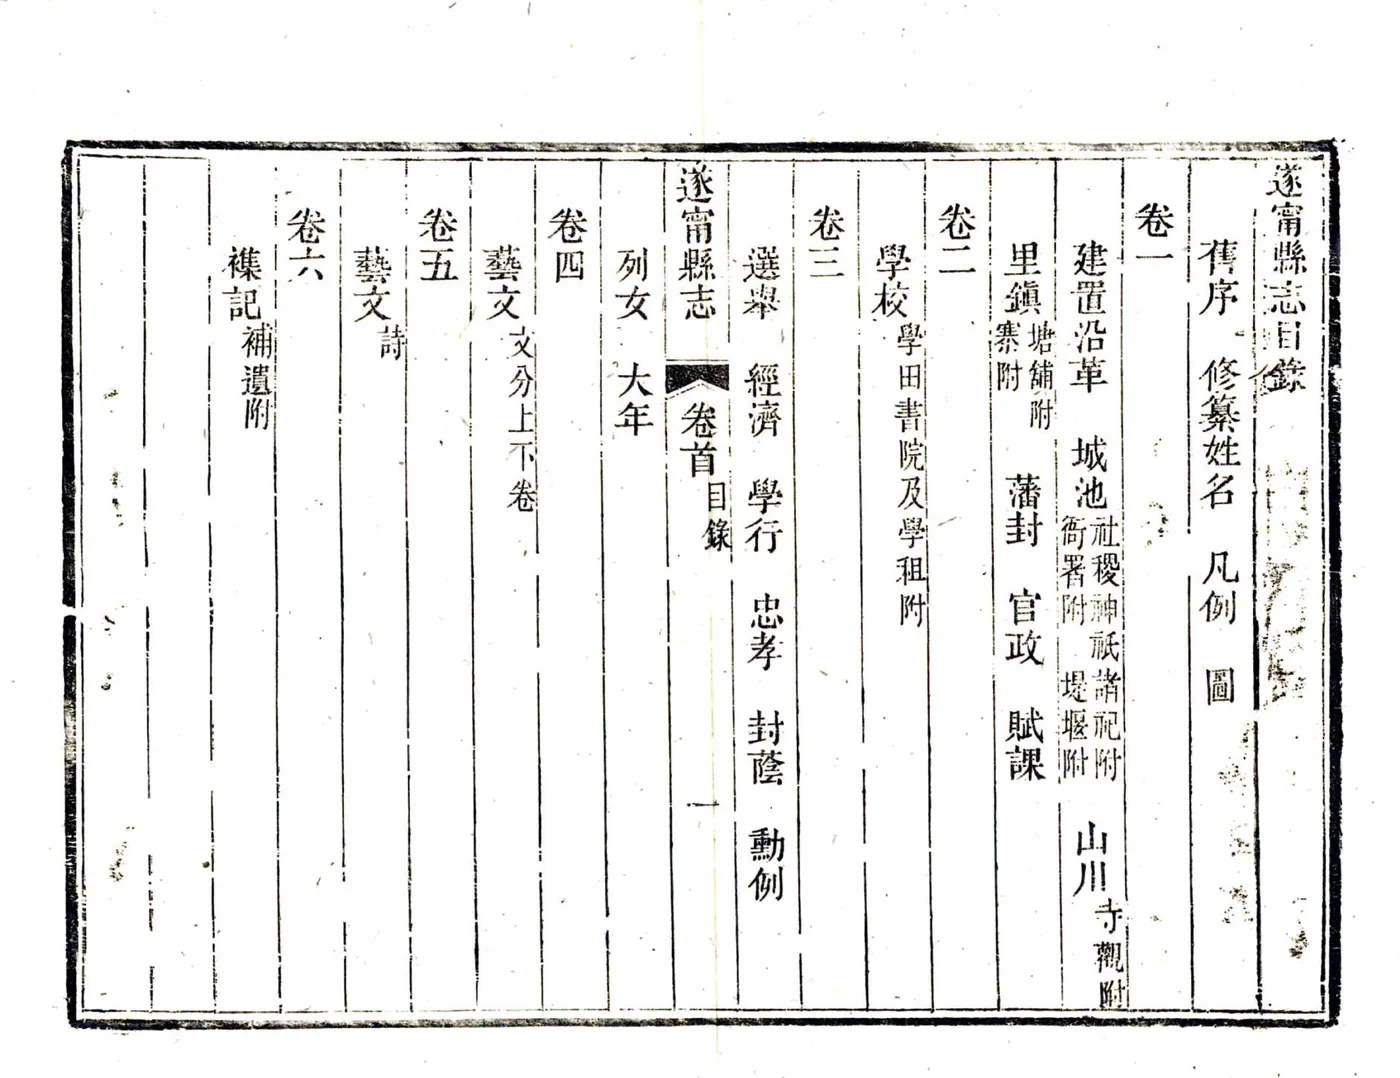 遂甯縣志目錄
舊序　修纂姓名　凡例　圖
卷一
建置沿革　城池社稷神祇諸祀附衙署附　堤堰附　山川寺觀附
里鎮塘舖附寨附　藩封　官政　賦課
卷二
學校學田書院及學租附
卷三
選舉　經濟　學行　忠孝　封蔭　勳例
遂甯縣志　卷首目錄　一
列女　大年
卷四
藝文文分上下卷
卷五
藝文詩
卷六
襍記補遺附